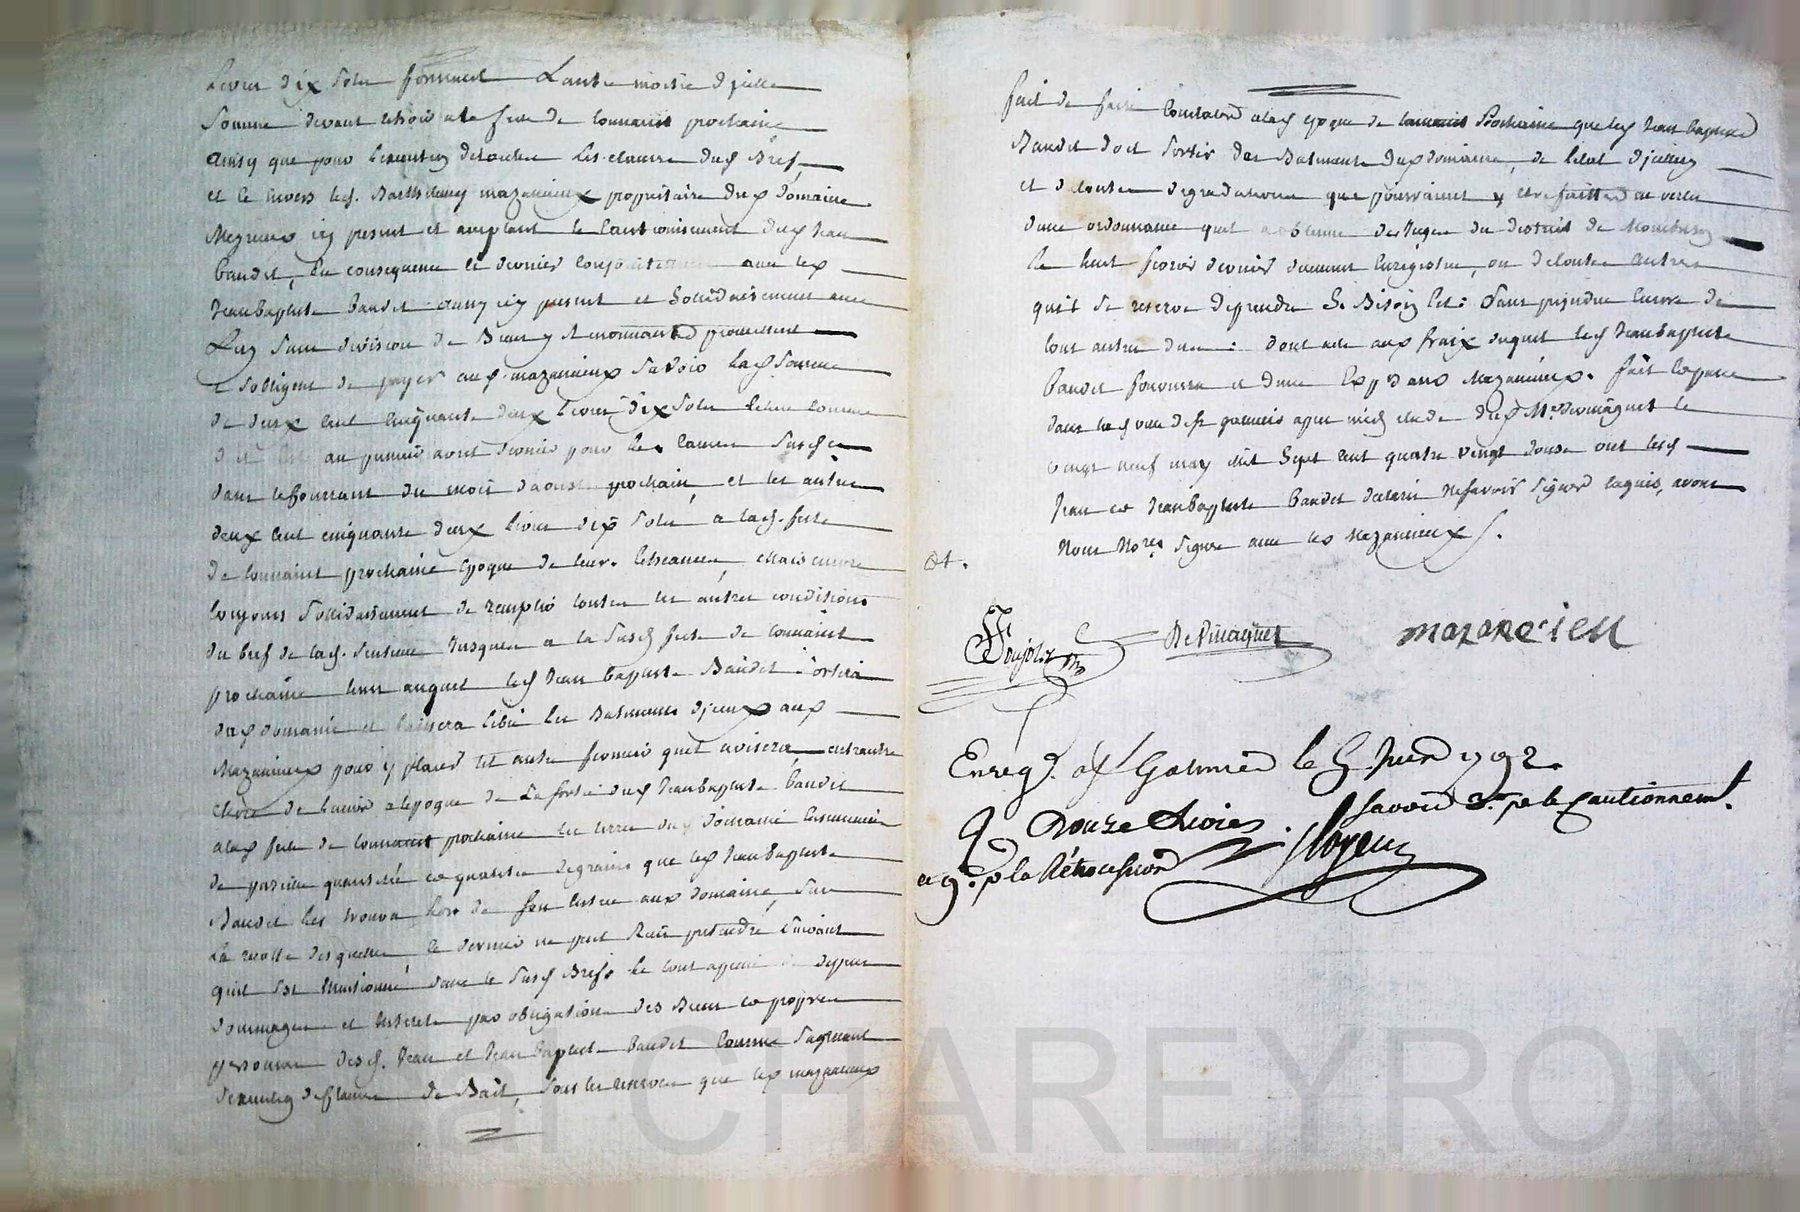 livres dix sols formant L'autre moitié d'icelle
Somme devant echoir a la fete de toussaint prochaine
Ainsy que pour l'execution de toutes les clauses dud. Bref
et se trouve led. Barthelemy mazancieux propriétaire dud. Domaine
icy present et acceptant le Cautionnement dud. Jean
Baudet, En consequence ce dernier conjointement avec led.
Jean baptiste Baudet aussy icy present et Sollidairement avec
Luy sans division de Biens y Renonçant promettent
s'obligent de payer aud. mazancieux savoir lad. somme
de deux cent cinquante deux livres dix sols echue comme
dit est au premier avril dernier pour les causes susd.
dans le courant du mois d'aoust prochain, et les autres
deux cent cinquante deux livres dix sols a lad. fete
de toussaint prochaine Epoque de leur Echeance, mais encore
toujours sollidairement de remplir toutes les autres conditions
du bref de lad. jusques a la susd. fete de toussaint
prochaine tems auquel led. Jean baptiste Baudet sortira
dud. domaine et laissera libre les Batiments d'iceux aud.
Mazancieux pour y placer tel autre fermier qu'il avisera, entr'autre
de laisser a l'epoque de La sortie dud. Jean baptiste Baudet
a lad. fete de toussaint prochaine les terres dud. Domaine Ensemencées
de pareille quantité et qualité de grains que led. Jean baptiste
Baudet les trouva lors de son entrée aud. domaine, sur
La recolte desquelles ce dernier ne peut Rien pretendre suivant
qu'il est Mentionné dans le susd. Bref. Le tout a peine de depens
dommages et interets par obligation des Biens et propres
personnes desd. Jean et Jean Baptiste Baudet comme s'agissant
d'execution de clauses de Bail, sous les reserves que led. mazancieux
fait de faire Constater a lad. epoque de toussaint Prochaine que led. Jean baptiste
Baudet doit sortir des Batiments dud. domaine, de l'etat d'iceux
et de toutes degradations que pourraient y etre faittes en vertu
d'une ordonnance qu'il a obtenu des Juges du district de Montbrison
le huit fevrier dernier duement Enregistrée, ou de toutes autres
qu'il se reserve de prendre Si Besoin est : Sans prejudice Encore de
tout autre dues : dont acte aux fraix duquel led. Jean baptiste
Baudet fournira et d'une Expn. aud. Mazancieux. fait et passé
dans lad. ville de St. galmier apres midy etude dud. Me. devinaguet le
vingt neuf may mil Sept cent quatre vingt douze ont lesd.
Jean et Jean baptiste Baudet declaré ne savoir Signer requis, avons
Nous Nores. Signé avec led. Mazancieux.
Devinaguet
mazancieu
Enreg. a St. Galmier le 5. Juin 1792.
R. Douze Livres. Savoir 3. pr. le Cautionnemt.
et 9. pr. la Rétrocession
al CHAREYRON